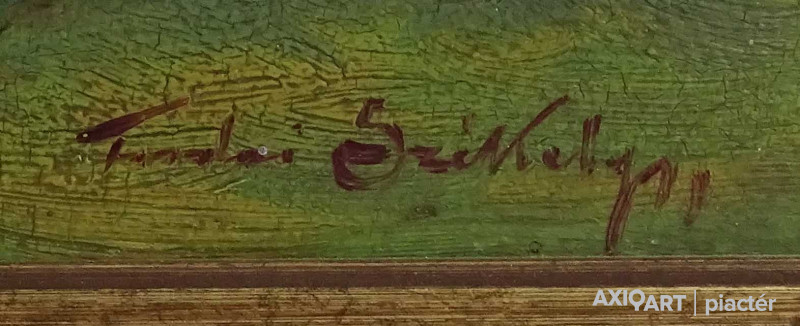 Tordai Székely
AXIOART | piactér